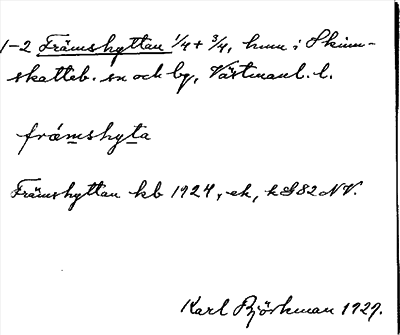 1-2 Främshyttan 1/4 + 3/4, hmn i Skinn-
skatteb. sn och bg, Västmanl. l.
främshyta
Främshyttan kb 1924, ek, k S82 NV.
Karl Björkman 1927.